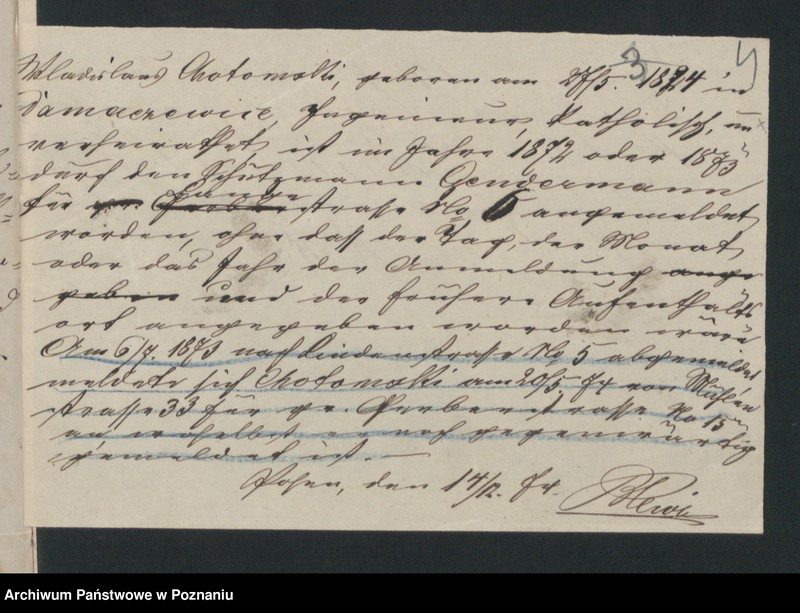 3 4
Wladislaus Chotomski, geboren am 27/5. 1824 in
Damaczewice, Ingenieur, katholisch, un
verheirathet ist im Jahre 1872 oder 1873
durch den Schutzmann Gendermann
Lange
für gr. Gerberstrasse No 6 angemeldet
worden, ohne dass der Tag, der Monat
oder das Jahr der Anmeldung ange
geben und der frühere Aufenthalts
ort angegeben worden wäre
Am 6/7. 1873 nach Lindenstrasse No 5 abgemeldet
meldete sich Chotomski am 20/5. 74 von Mühlen
strasse 33 für gr. Gerberstrasse No 15
an woselbst er noch gegenwärtig
gemeldet ist.
Posen, den 14/12. 74.
Archiwum Państwowe w Poznaniu